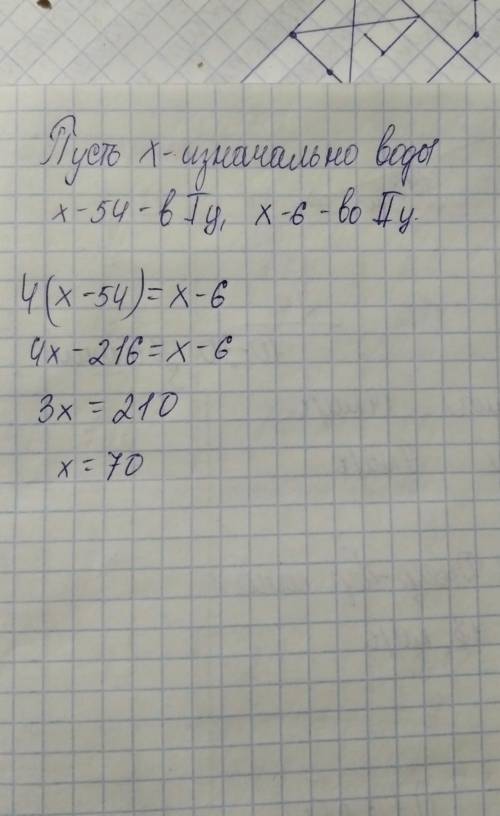 Пусть x - изначально воды
x - 54 - в I ц, x - 6 - во II ц.
4(x - 54) = x - 6
4x - 216 = x - 6
3x = 210
x = 70